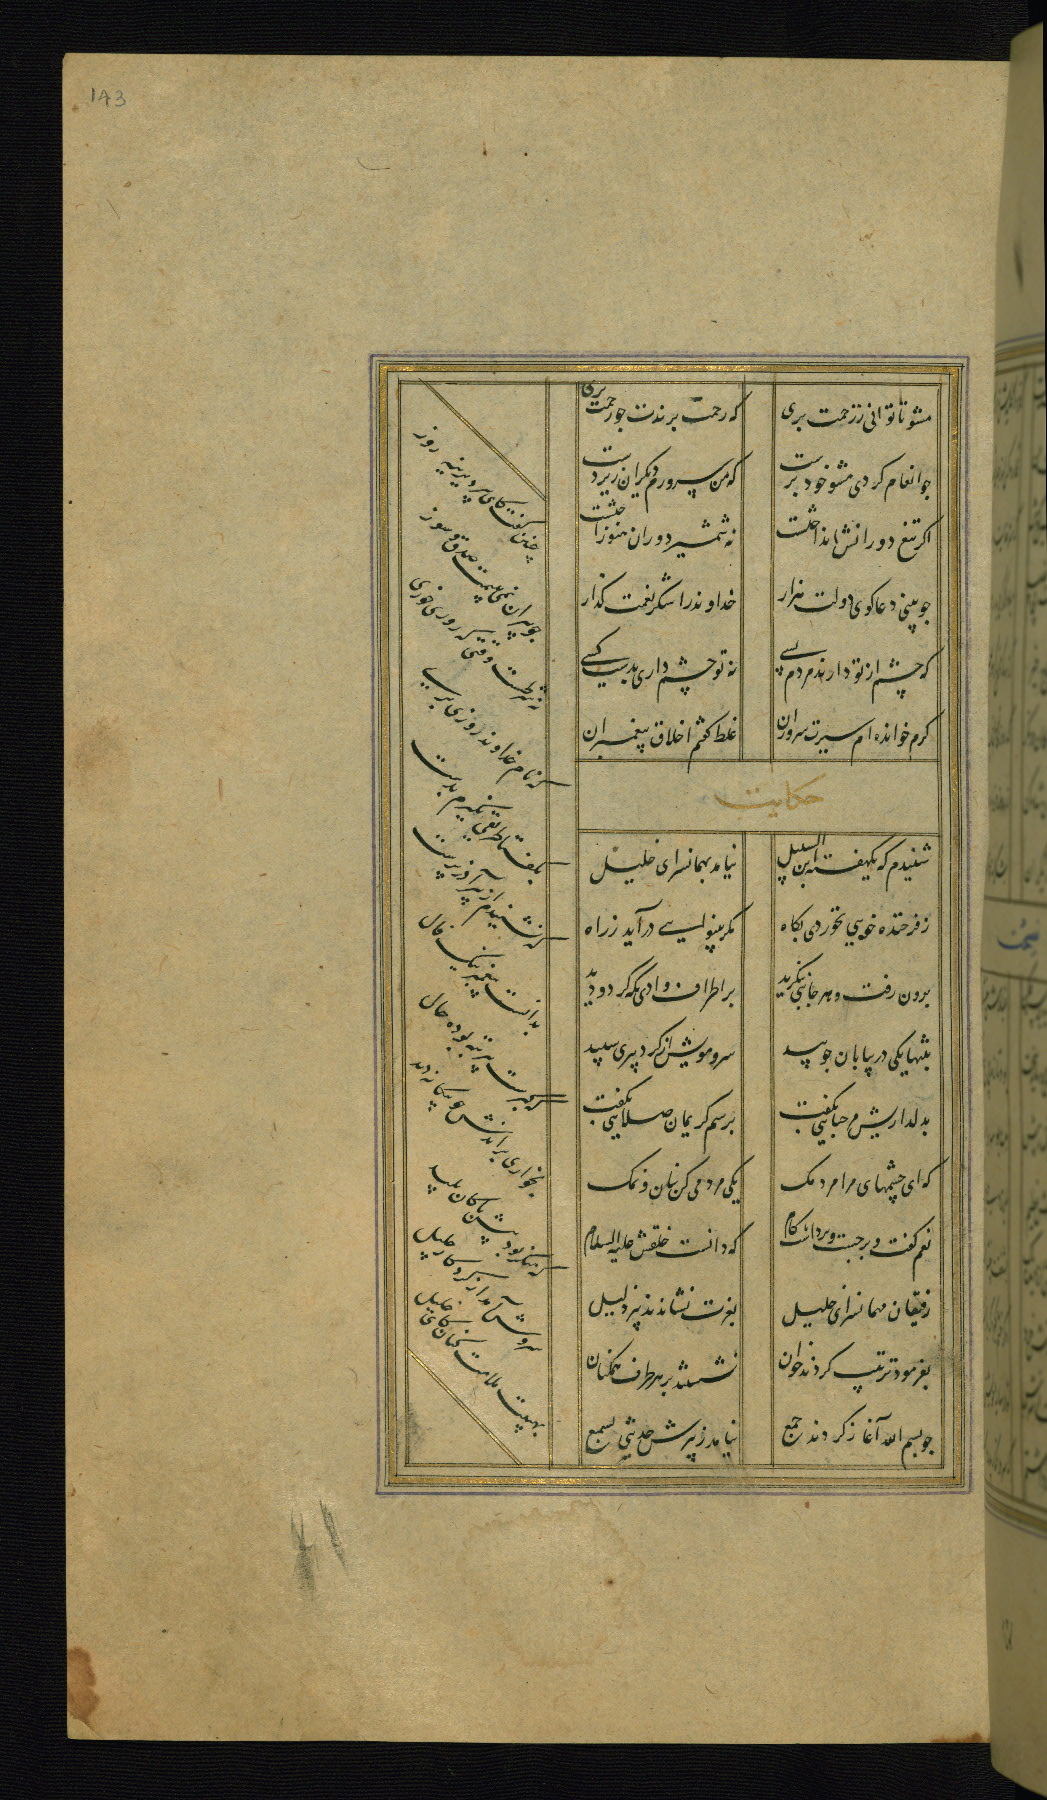 143
مشو تا توانی ز رحمت بری
که رحمت برندت چو رحمت بری
چو انعام کردی مشو خود پرست
که من سرورم دیگران زیردست
اگر تیغ دورانش انداختست
نه شمشیر دوران هنوز آختست
چو بینی دعاگوی دولت هزار
خداوند را شکر نعمت گذار
که چشم از تو دارند مردم بسی
نه تو چشم داری بدست کسی
کرم خوانده‌ام سیرت سروران
غلط گفتم اخلاق پیغمبران
حکایت
شنیدم که یکهفته ابن السبیل
نیامد بمهمانسرای خلیل
ز فرخنده خویی نخوردی بگاه
مگر بینوایی درآید ز راه
برون رفت و هر جانبی بنگرید
بر اطراف وادی نگه کرد و دید
بتنها یکی در بیابان چو بید
سر و مویش از گرد پیری سپید
بدلداریش مرحبایی بگفت
برسم کریمان صلایی بگفت
که ای چشمهای مرا مردمک
یکی مردمی کن بنان و نمک
نعم گفت و برجست و برداشت گام
که دانست خلقش علیه السلام
رفیقان مهمانسرای خلیل
بعزت نشاندند پیر ذلیل
بفرمود ترتیب کردند خوان
نشستند بر هر طرف همگنان
چو بسم الله آغاز کردند جمع
نیامد ز پیرش حدیثی بسمع
چنین گفت کای پیر دیرینه روز
چو پیران نمی‌بینمت صدق و سوز
نه شرطست وقتی که روزی خوری
که نام خداوند روزی بری
بگفتا نگیرم طریقی بدست
که نشنیدم از پیر آذرپرست
بدانست پیغمبر نیک فال
که گبرست پیر تبه بوده حال
بخواری براندش چو بیگانه دید
که منکر بود پیش پاکان پلید
سروش آمد از کردگار جلیل
بهیبت ملامت کنان کای خلیل